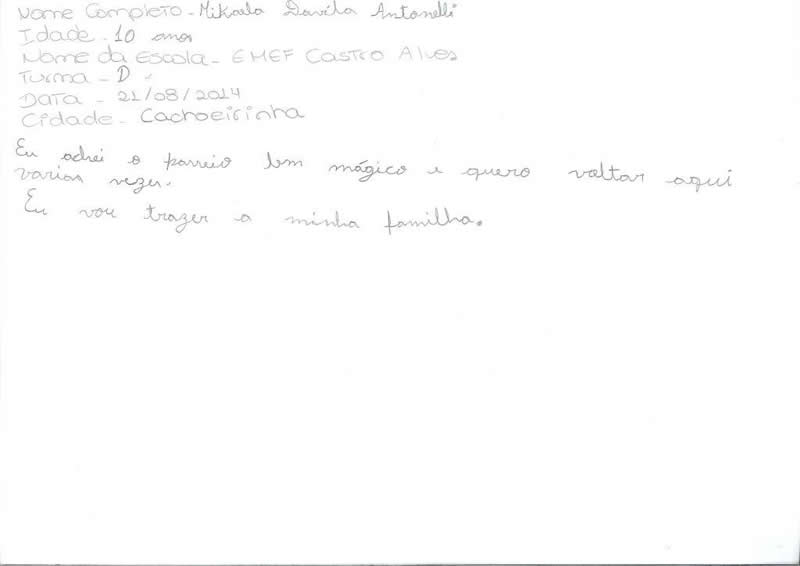 Nome Completo - Mikaela Davila Antonelli
Idade - 10 anos
Nome da Escola - EMEF Castro Alves
Turma - D
Data - 21/08/2014
Cidade - Cachoeirinha
Eu achei o passeio bem mágico e quero voltar aqui
varias vezes.
Eu vou trazer a minha familha.